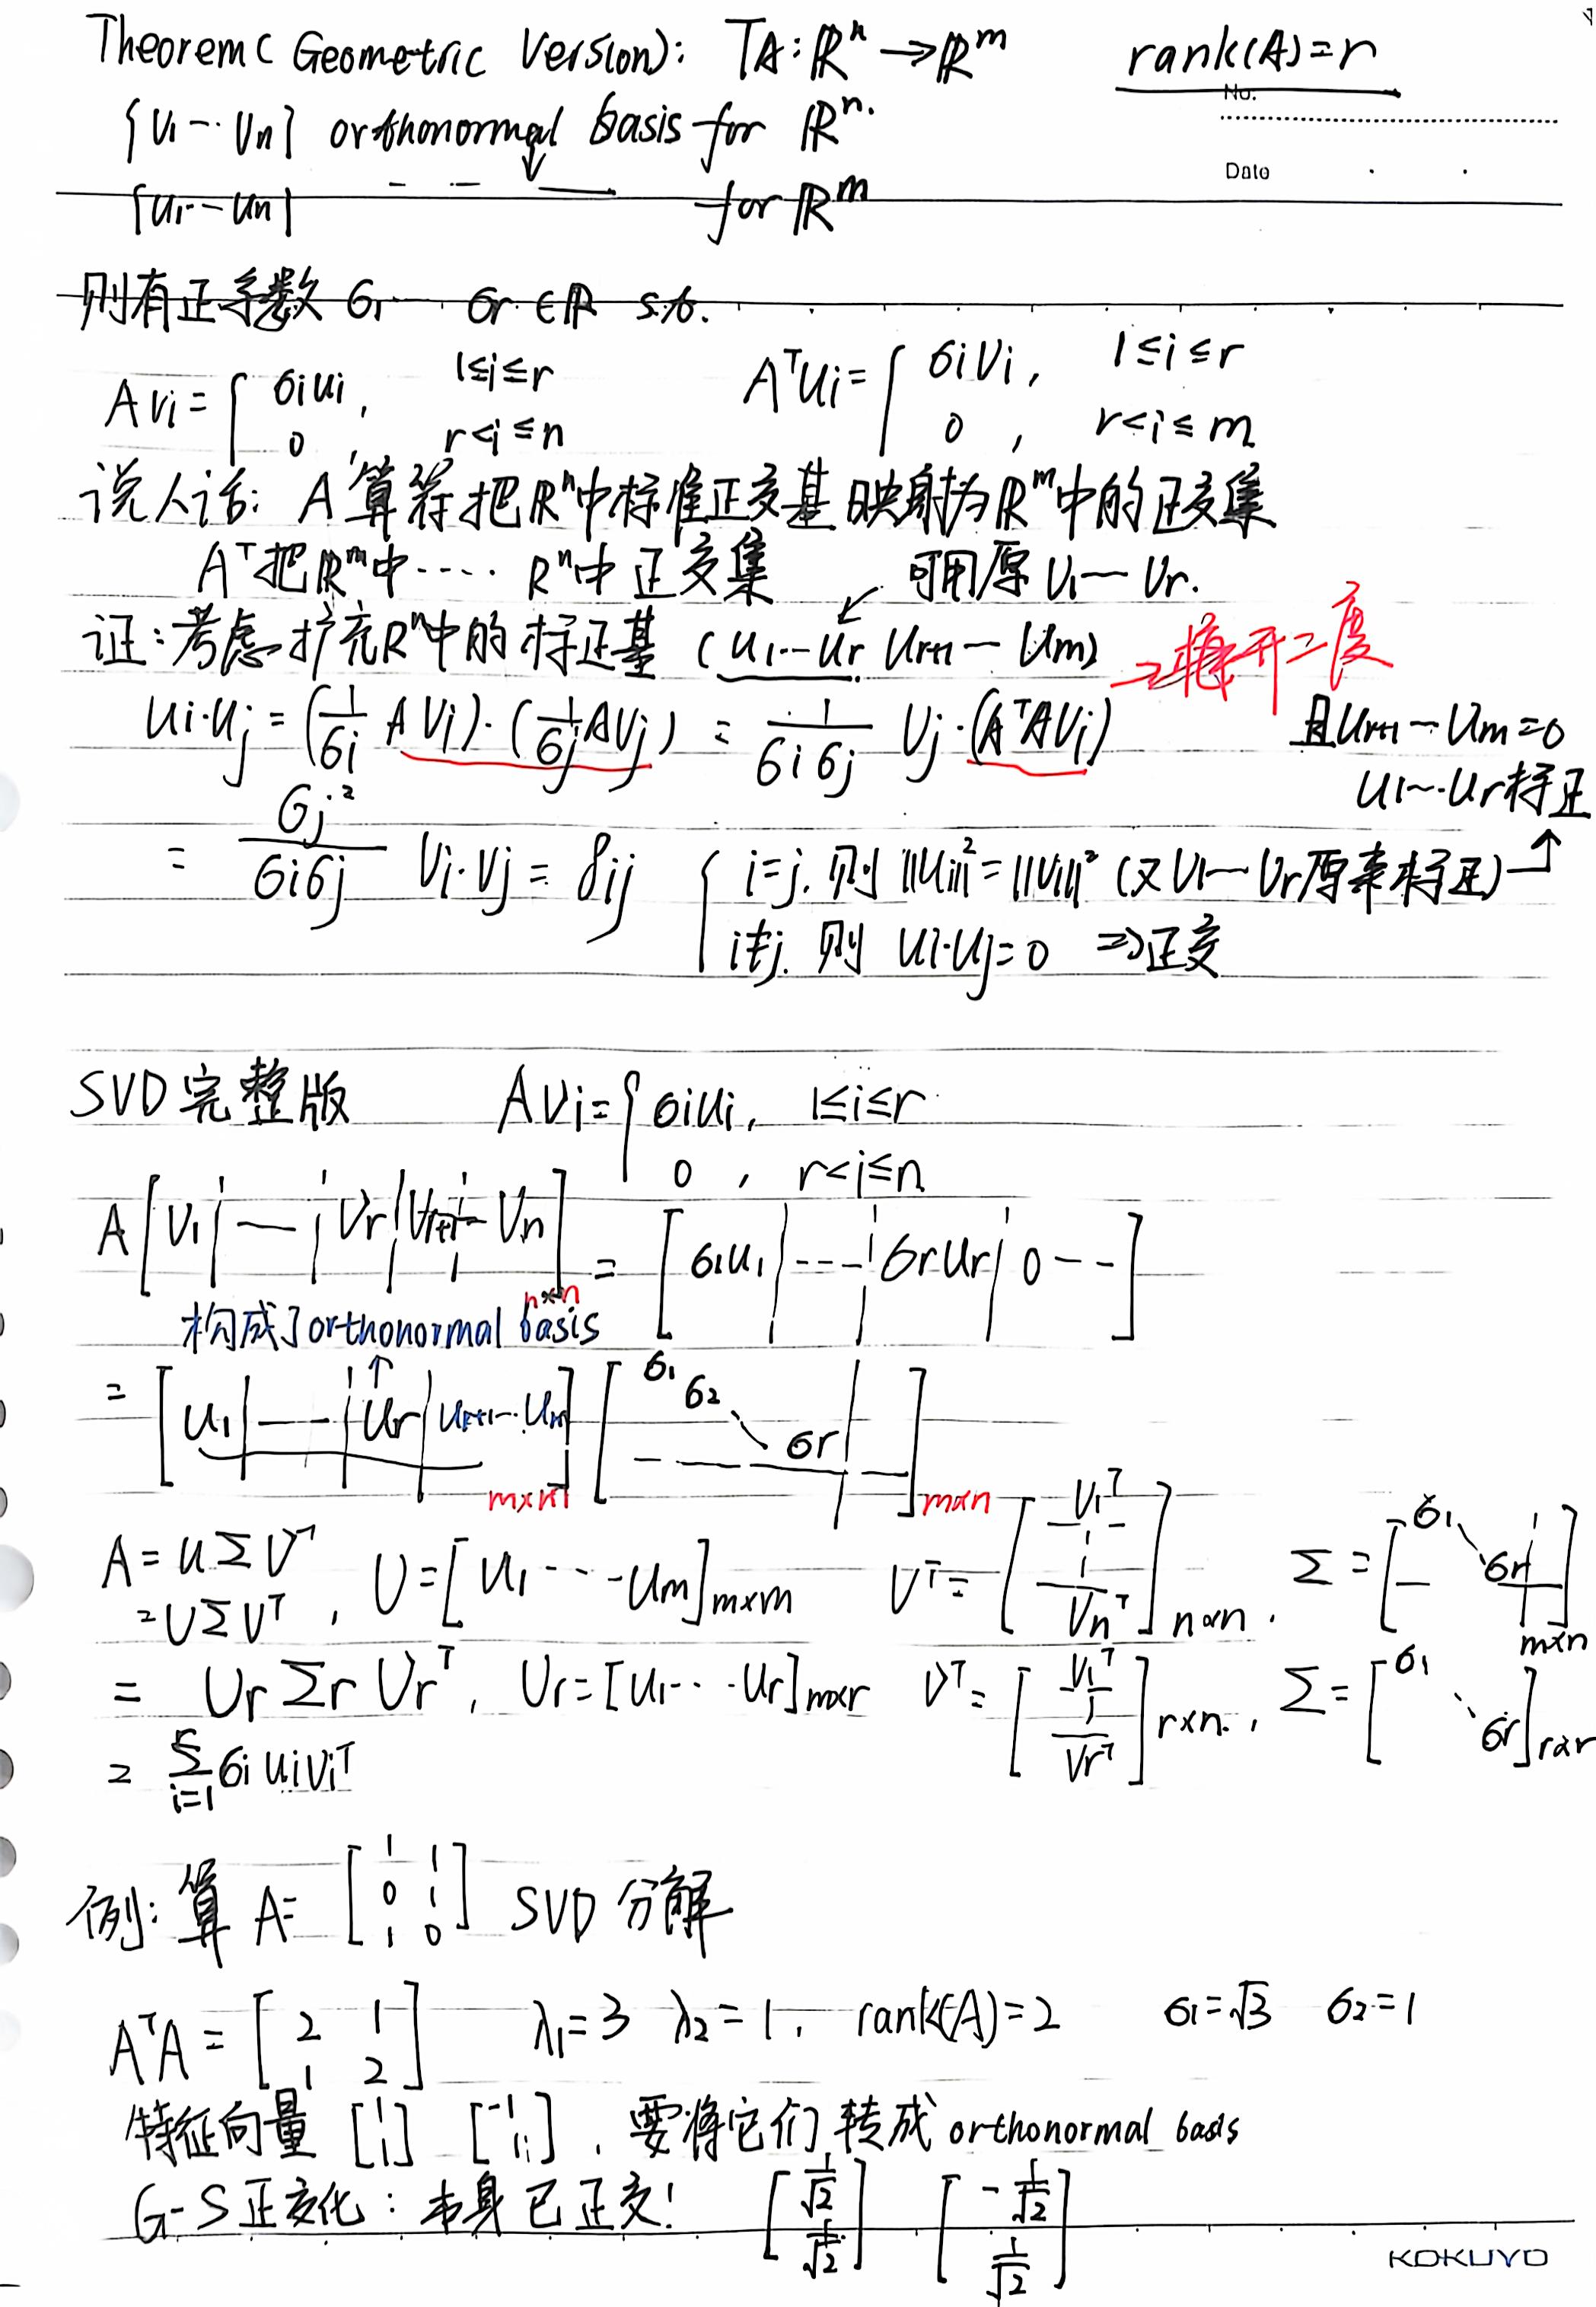 Theorem ( Geometric Version): TA: ℝⁿ → ℝᵐ rank(A)=r
No.
{v₁ ⋯ vₙ} orthonormal basis for ℝⁿ.
Date
{u₁ ⋯ uₙ} for ℝᵐ
则有正系数 σ₁ ⋯ σᵣ ∈ ℝ s.t.
Avᵢ = { σᵢuᵢ, 1≤i≤r ; 0, r<i≤n AᵀUᵢ = { σᵢVᵢ, 1≤i≤r ; 0, r<i≤m
说人话: A算符把ℝⁿ中标准正交基映射为ℝᵐ中的正交集
Aᵀ把ℝᵐ中⋯⋯ ℝⁿ中正交集 可用原 V₁—Vᵣ.
证:考虑扩充ℝⁿ中的标正基 (u₁⋯uᵣ uᵣ₊₁ — uₘ) →梅开二度
uᵢ·uⱼ = (1/σᵢ AVᵢ)·(1/σⱼ AVⱼ) = 1/(σᵢσⱼ) Vⱼ·(AᵀAVᵢ) 且uᵣ₊₁ ⋯ uₘ=0
u₁⋯uᵣ标正
= σⱼ²/(σᵢσⱼ) Vᵢ·Vⱼ = δᵢⱼ { i=j. 则 ||uᵢ||²=||vᵢ||² (又V₁—Vᵣ原来标正)
i≠j. 则 uᵢ·uⱼ=0 ⇒正交
SVD 完整版 AVᵢ = { σᵢuᵢ, 1≤i≤r ; 0, r<i≤n
A [V₁ | — | Vᵣ | Vᵣ₊₁ — Vₙ] n×n = [σ₁u₁ | ⋯ | σᵣuᵣ | 0 --]
构成了orthonormal basis
= [u₁ | — | uᵣ | uᵣ₊₁ ⋯ uₘ] m×m [σ₁ σ₂ ⋱ σᵣ] m×n
A = UΣVᵀ
= UΣVᵀ, U = [u₁ ⋯ uₘ] m×m Vᵀ = [V₁ᵀ ⋮ Vₙᵀ] n×n, Σ = [σ₁ ⋱ σᵣ] m×n
= UᵣΣᵣVᵣᵀ, Uᵣ = [u₁ ⋯ uᵣ] m×r Vᵀ = [V₁ᵀ ⋮ Vᵣᵀ] r×n, Σ = [σ₁ ⋱ σᵣ] r×r
= Σᵢ₌₁ʳ σᵢ uᵢvᵢᵀ
例: 算 A = [1 1 ; 0 1 ; 1 0] SVD 分解
AᵀA = [2 1 ; 1 2] λ₁=3 λ₂=1, rank(A)=2 σ₁=√3 σ₂=1
特征向量 [1 ; 1] [-1 ; 1], 要将它们转成 orthonormal basis
G-S正交化: 本身已正交! [1/√2 ; 1/√2] [-1/√2 ; 1/√2]
KOKUYO